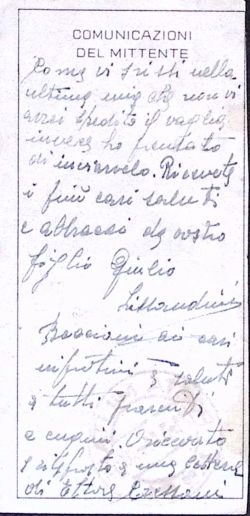 COMUNICAZIONI
DEL MITTENTE
Come vi scissi nella
ultima mia che non vi
avrei spedito il vaglia
invece ho pensato
di inviarvelo. Ricevete
i più cari saluti
e abbracci da vostro
figlio Giulio
Bacioni ai cari
nipotini e saluti
a tutti parenti
e cugini
e una lettera
di Ettore